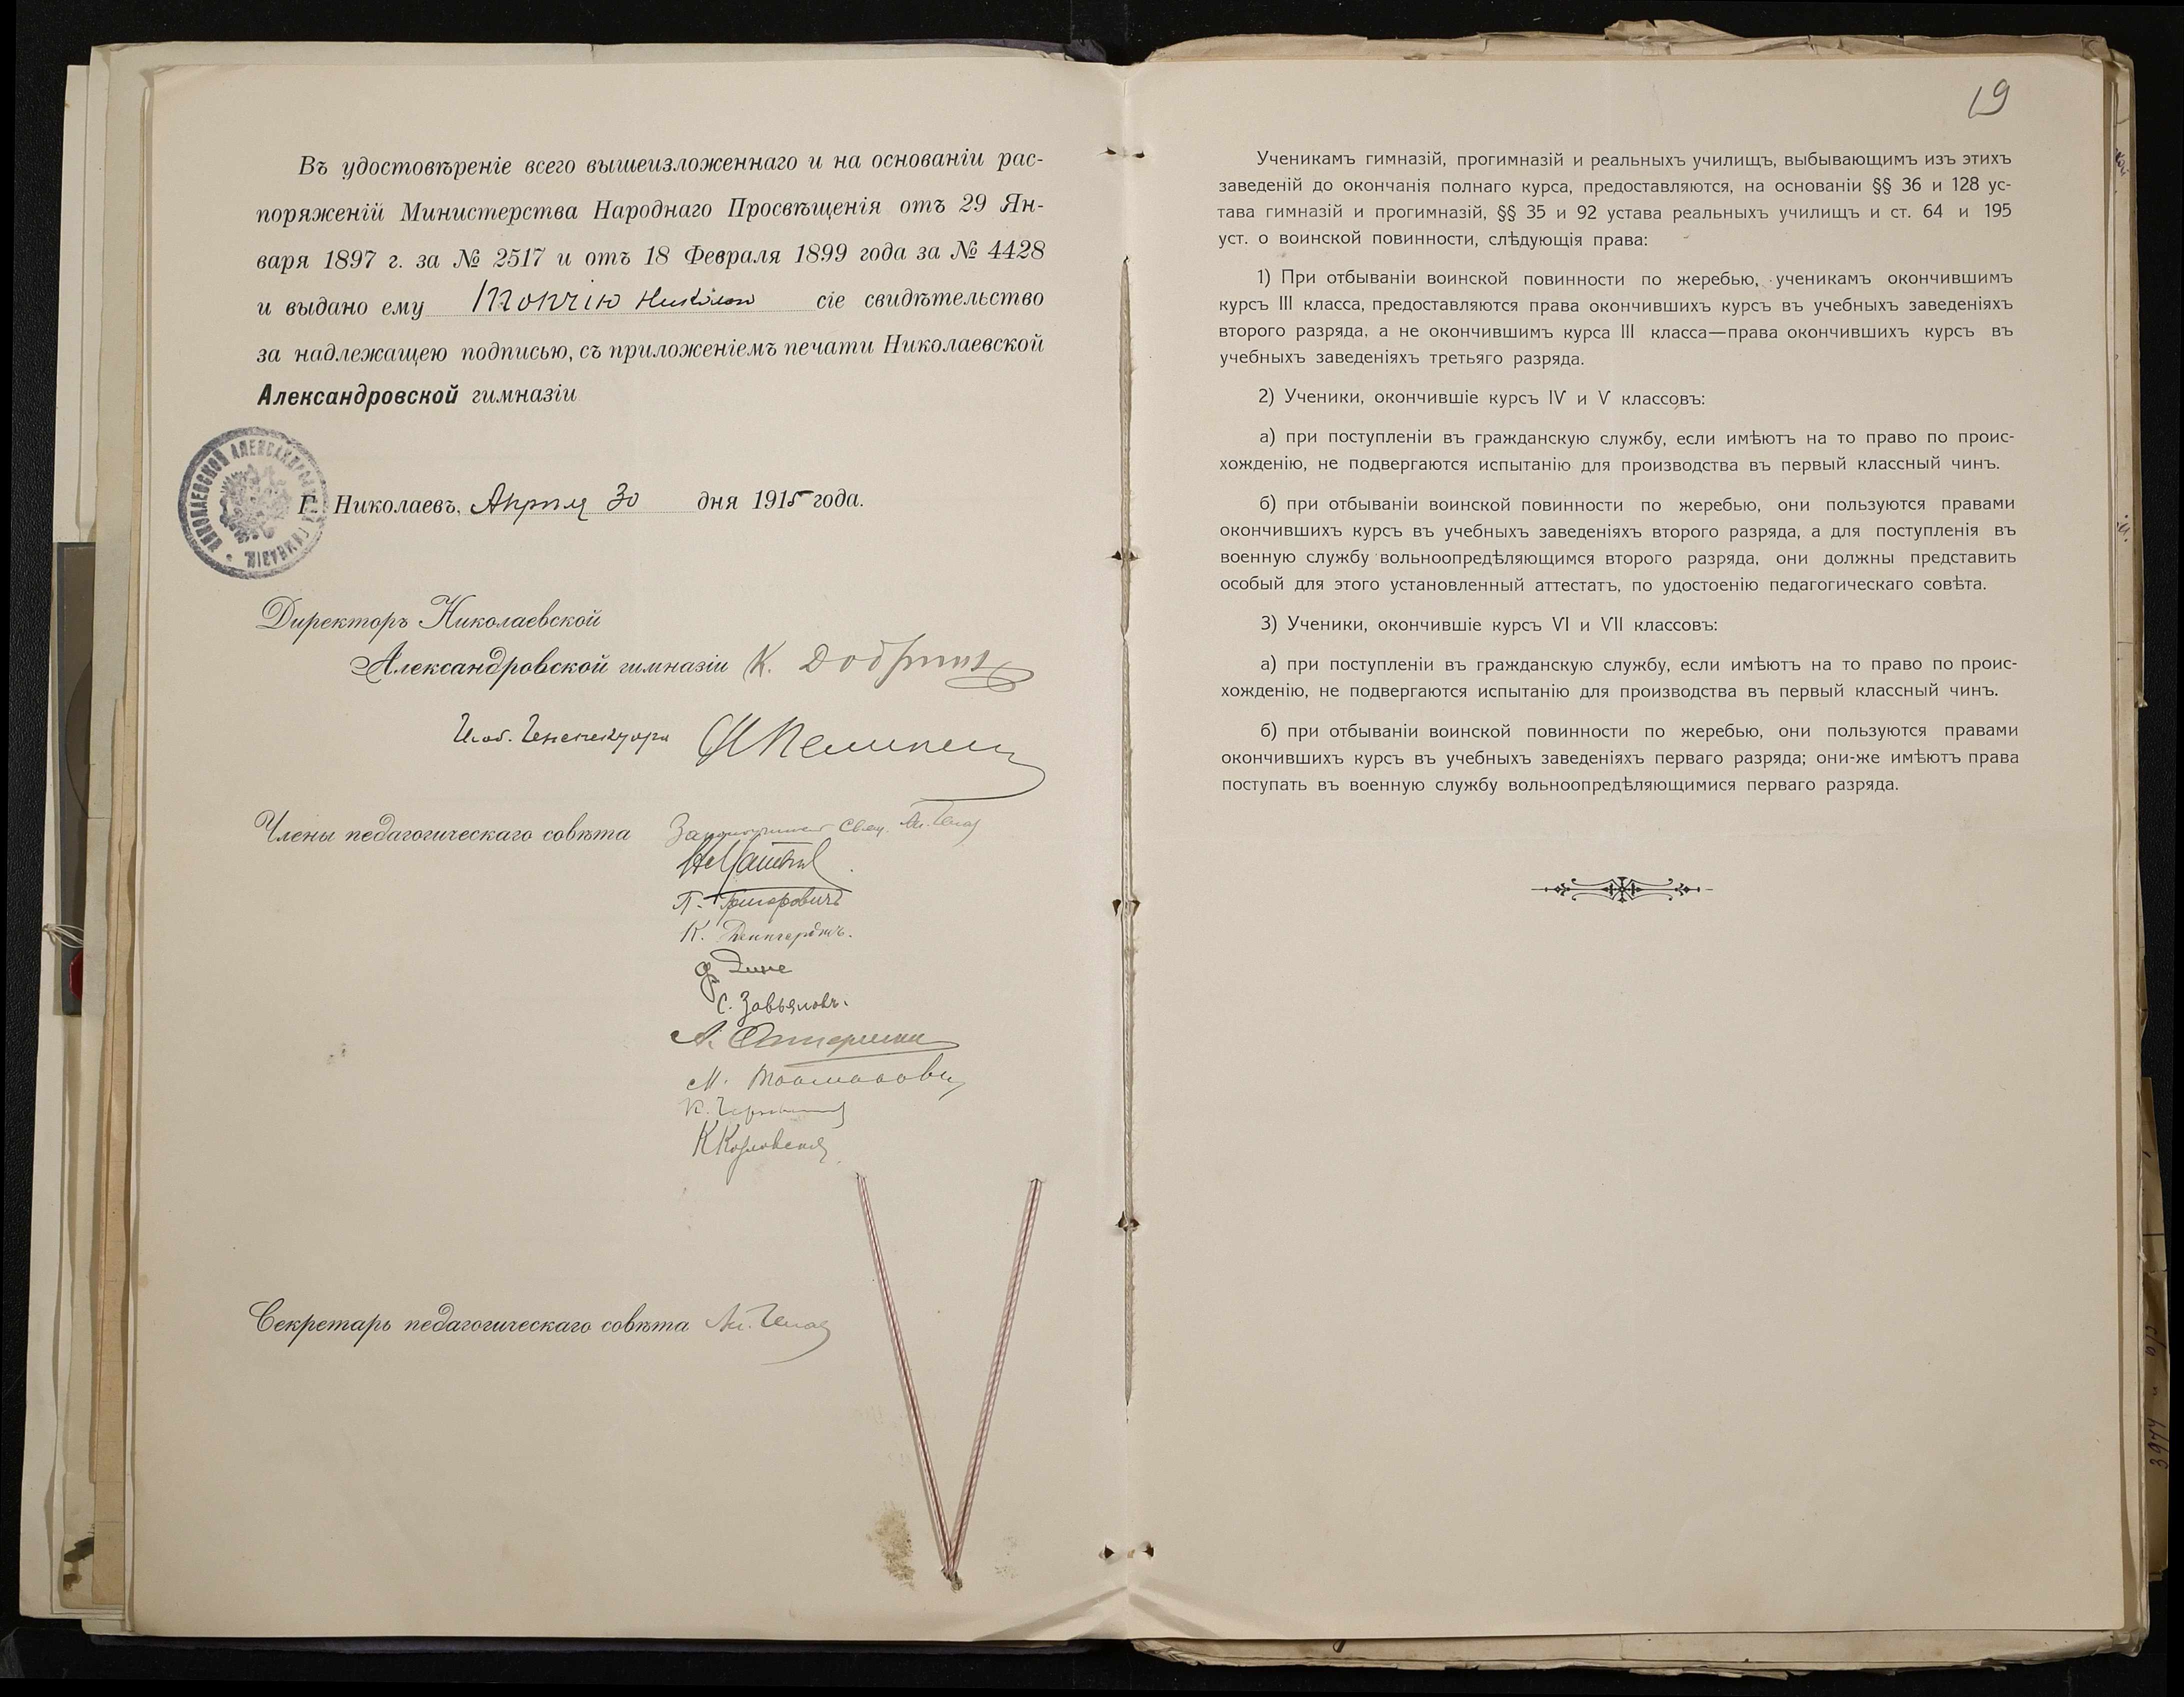 Въ удостовѣреніе всего вышеизложеннаго и на основаніи рас-
поряженій Министерства Народнаго Просвѣщенія отъ 29 Ян-
варя 1897 г. за № 2517 и отъ 18 Февраля 1899 года за № 4428
и выдано ему Топчію Николаю сіе свидѣтельство
за надлежащею подписью, съ приложеніемъ печати Николаевской
Александровской гимназіи
НИКОЛАЕВСКОЙ АЛЕКСАНДРОВСКОЙ ГИМНАЗІИ
Г. Николаевъ, Апрѣля 30 дня 1915 года.
Директоръ Николаевской
Александровской гимназіи К.
Исп. об. Инспектора
Члены педагогическаго совѣта Законоучитель Свящ.
П. Григоровичъ
К.
С. Завьяловъ.
А.
М.
К.
К Козловскій
Секретарь педагогическаго совѣта
19
Ученикамъ гимназій, прогимназій и реальныхъ училищъ, выбывающимъ изъ этихъ
заведеній до окончанія полнаго курса, предоставляются, на основаніи §§ 36 и 128 ус-
тава гимназій и прогимназій, §§ 35 и 92 устава реальныхъ училищъ и ст. 64 и 195
уст. о воинской повинности, слѣдующія права:
1) При отбываніи воинской повинности по жеребью, ученикамъ окончившимъ
курсъ III класса, предоставляются права окончившихъ курсъ въ учебныхъ заведеніяхъ
второго разряда, а не окончившимъ курса III класса—права окончившихъ курсъ въ
учебныхъ заведеніяхъ третьяго разряда.
2) Ученики, окончившіе курсъ IV и V классовъ:
а) при поступленіи въ гражданскую службу, если имѣютъ на то право по проис-
хожденію, не подвергаются испытанію для производства въ первый классный чинъ.
б) при отбываніи воинской повинности по жеребью, они пользуются правами
окончившихъ курсъ въ учебныхъ заведеніяхъ второго разряда, а для поступленія въ
военную службу вольноопредѣляющимся второго разряда, они должны представить
особый для этого установленный аттестатъ, по удостоенію педагогическаго совѣта.
3) Ученики, окончившіе курсъ VI и VII классовъ:
а) при поступленіи въ гражданскую службу, если имѣютъ на то право по проис-
хожденію, не подвергаются испытанію для производства въ первый классный чинъ.
б) при отбываніи воинской повинности по жеребью, они пользуются правами
окончившихъ курсъ въ учебныхъ заведеніяхъ перваго разряда; они-же имѣютъ права
поступать въ военную службу вольноопредѣляющимися перваго разряда.